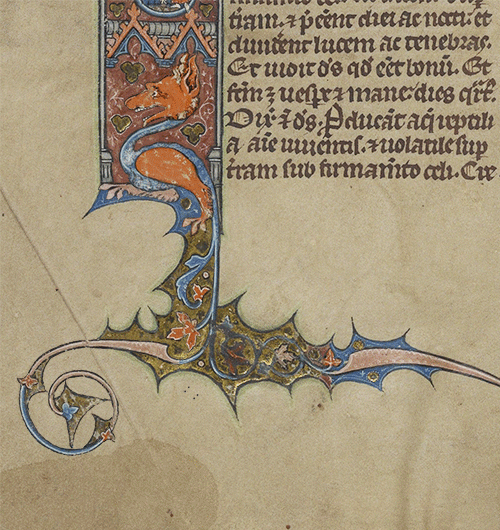 tiam. ⁊ p̃cẽnt diei ac nocti. et
diuidẽnt lucem ac tenebras.
Et uidit d̃s qd̃ eẽt bonũ. Et
fc̃m ẽ uesp̃e ⁊ mane dies qrt̃.
Dix̃ ẽ d̃s. Pducãt aq̃ reptili
a aĩe uiuentis. ⁊ uolatile sup
tram sub firmam̃to celi. Cre